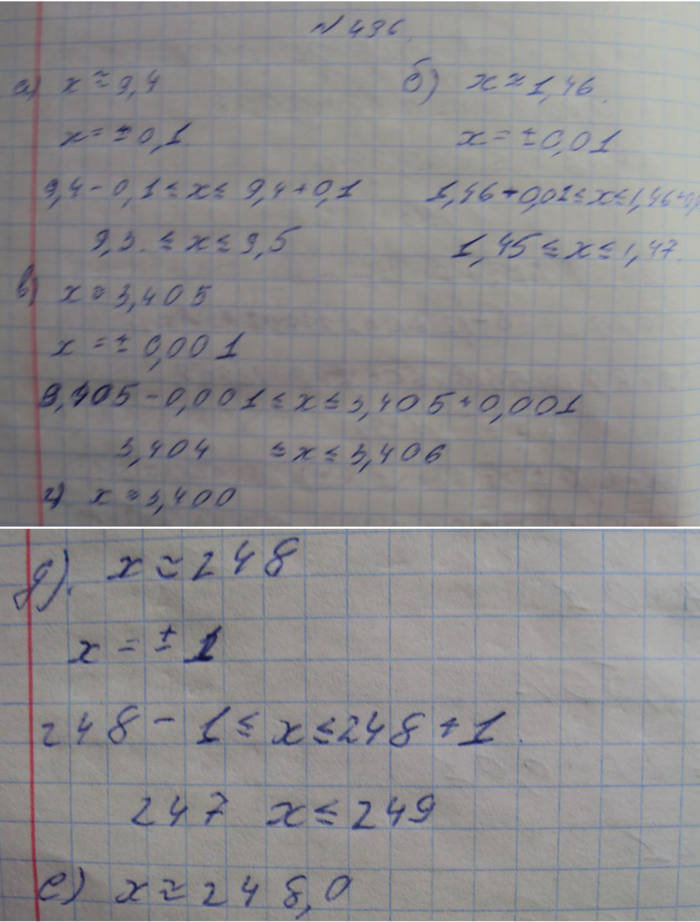 № 436.
а) x ≈ 9,4
x = ± 0,1
9,4 - 0,1 ≤ x ≤ 9,4 + 0,1
9,3. ≤ x ≤ 9,5
б) x ≈ 1,46.
x = ± 0,01
1,46 + 0,01 ≤ x ≤ 1,46 + 0,
1,45 ≤ x ≤ 1,47.
в) x ≈ 3,405
x = ± 0,001
3,405 - 0,001 ≤ x ≤ 3,405 + 0,001
3,404 ≤ x ≤ 3,406
г) x ≈ 3,400
д). x ≈ 248
x = ± 1
248 - 1 ≤ x ≤ 248 + 1.
247 x ≤ 249
е) x ≈ 248,0